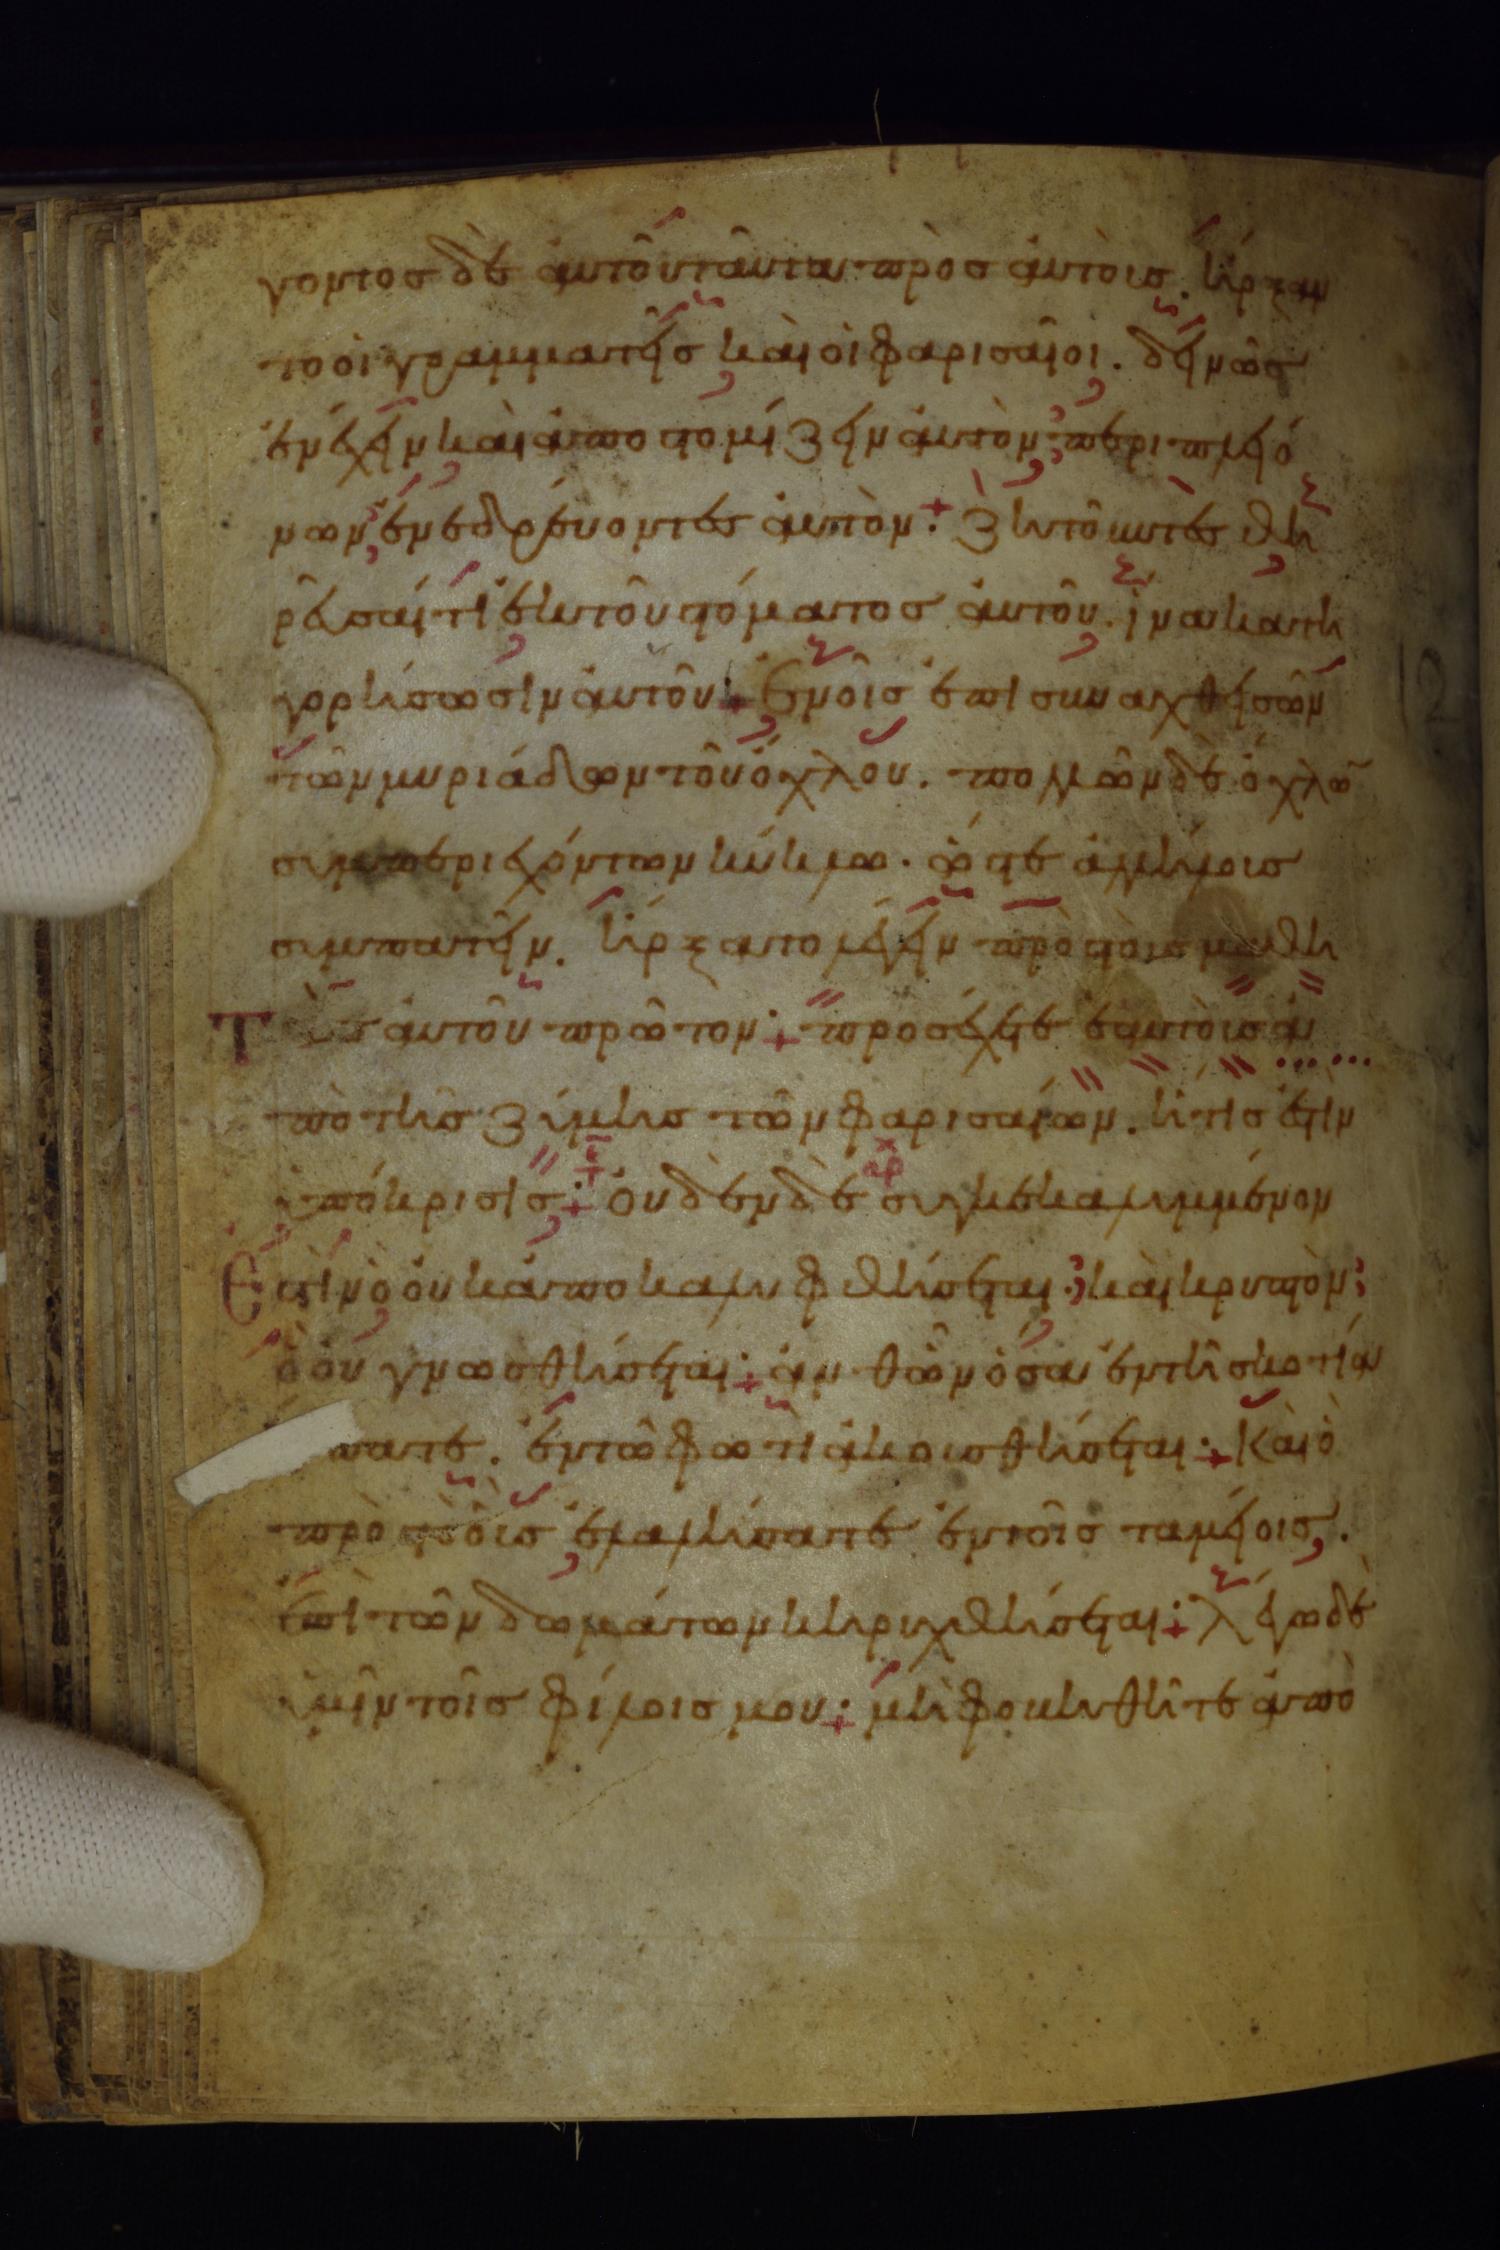 γοντος δὲ ἀυτοῦ ταῦτα πρὸσ ἀυτὸισ. ἤρξαν
το ὁι γραμματεῖς κὰι ὁι φαρισαῖοι. δεινῶσ
ἐνέχειν κὰι ἀποστομίζειν ἀυτὸν· περι πλειό
νων· ἐνεδρέυοντες ἀυτὸν· ζητοῦντες θη
ρεῦσαί τι ἐκ τοῦ στόματος ἀυτοῦ. ἵνα κατη
γορήσωσιν ἀυτοῦ· Ἐν οἷς ἐπισυναχθεισῶν
τῶν μυριάδων τοῦ ὄχλου. πολλῶν δὲ ὄχλω
συμπεριεχόντων κύκλω. ὥστε ἀλλήλοις
συμπατεῖν. ἤρξατο λέγειν πρὸ στὸισ μαθη
Τ ἀυτοῦ πρῶτον· προσέχετε εαυτὸισ ἀ
πὸ τῆς ζύμης τῶν φαρισαίων. ἥτις ἐστὶν
ὑπόκρισις· Ὀυδὲν δὲ συγκεκαλυμμένον
Ἐστὶν ὃ ὀυκ ἀποκαλυφθήσεται· κὰι κρυπτὸν·
ὃ ὀυ γνωσθήσεται· ἀνθῶν ὅσα ἐν τῆ σκοτία
πατε. ἐν τῶ φωτὶ ἀκουσθήσεται· Κὰι ὃ
πρὸ στὸ ὂις ἐλαλήσατε ἐν τοῖς ταμείοις.
ἐπὶ τῶν δωμάτων κηρυχθήσεται· λέγω δὲ
ὑμῖν τοῖς φίλοις μου· μὴ φοβηθῆτε ἀπὸ